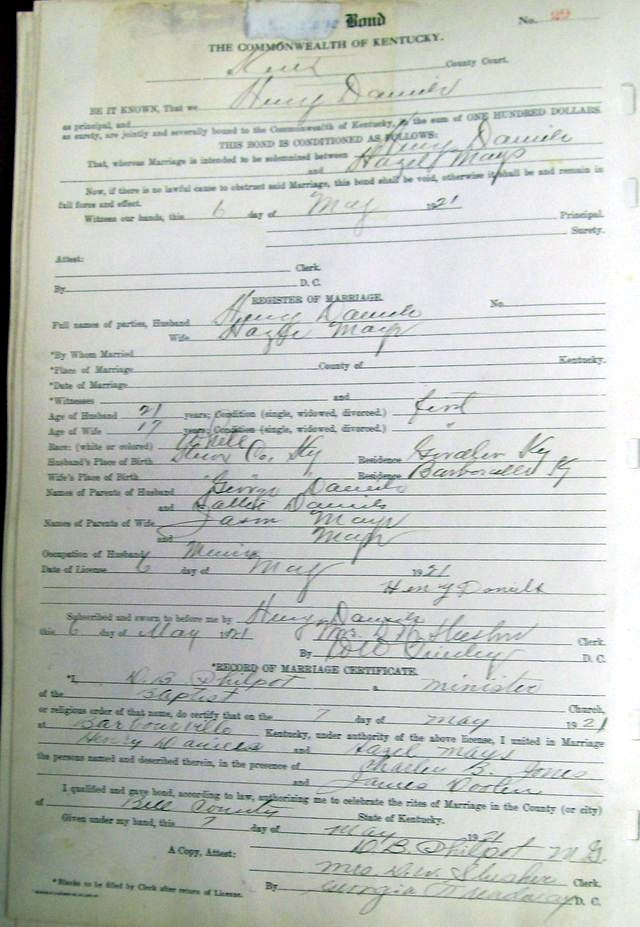 Bond
No.
THE COMMONWEALTH OF KENTUCKY.
Knox County Court.
BE IT KNOWN, That we Henry Daniels
as principal, and
as surety, are jointly and severally bound to the Commonwealth of Kentucky, in the sum of ONE HUNDRED DOLLARS.
THIS BOND IS CONDITIONED AS FOLLOWS:
That, whereas Marriage is intended to be solemnized between Henry Daniels
and Hazel Mays
Now, if there is no lawful cause to obstruct said Marriage, this bond shall be void, otherwise it shall be and remain in
full force and effect.
Witness our hands, this 6 day of May 1921
Principal.
Surety.
Attest:
Clerk.
By D. C.
REGISTER OF MARRIAGE.
No.
Full names of parties, Husband Henry Daniels
Wife Mays
*By Whom Married
*Place of Marriage County of Kentucky.
*Date of Marriage
*Witnesses and
Age of Husband 21 years; Condition (single, widowed, divorced.) first
Age of Wife 17 years; Condition (single, widowed, divorced.) "
Race: (white or colored) White
Husband's Place of Birth Knox Co. Ky Residence Ky
Wife's Place of Birth " " " Residence Barbourville Ky
Names of Parents of Husband George Daniels
and Daniels
Names of Parents of Wife Mays
and Mays
Occupation of Husband
Date of License 6 day of May 1921
Henry Daniels
Subscribed and sworn to before me by Henry Daniels
this 6 day of May 1921 Mrs. D. W. Slusher Clerk.
By D. C.
*RECORD OF MARRIAGE CERTIFICATE.
*I, D. B. Philpot a minister
of the Baptist Church,
or religious order of that name, do certify that on the 7 day of May 1921
at Barbourville Kentucky, under authority of the above license, I united in Marriage
Henry Daniels and Hazel Mays
the persons named and described therein, in the presence of Charley B. Jones
and James
I qualified and gave bond, according to law, authorizing me to celebrate the rites of Marriage in the County (or city)
of Bell County State of Kentucky.
Given under my hand, this 7 day of May 1921
D. B. Philpot M. G.
A Copy, Attest:
Mrs D. W. Slusher Clerk.
*Blanks to be filled by Clerk after return of License.
By Georgia Treadway D. C.